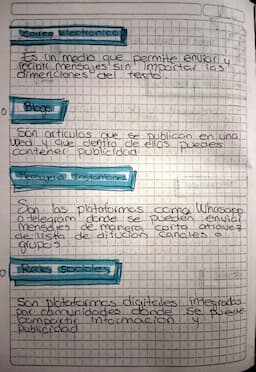 Correo electronico
Es un medio que permite enviar y
recibir mensajes sin importar las
dimenciones del texto.
Blogs
Son articulos que se publican en una
Wed y que dentro de ellos puedes
contener publicidad
Mensajeria Instantanea
Son las plataformas como Whatsapp
o telegram donde se pueden enviar
mensajes de manera corta atravez
de lista de difucion, canales o
grupos
Redes Sociales
Son plataformas digitales integradas
por comunidades donde se puede
compartir informacion y
publicidad